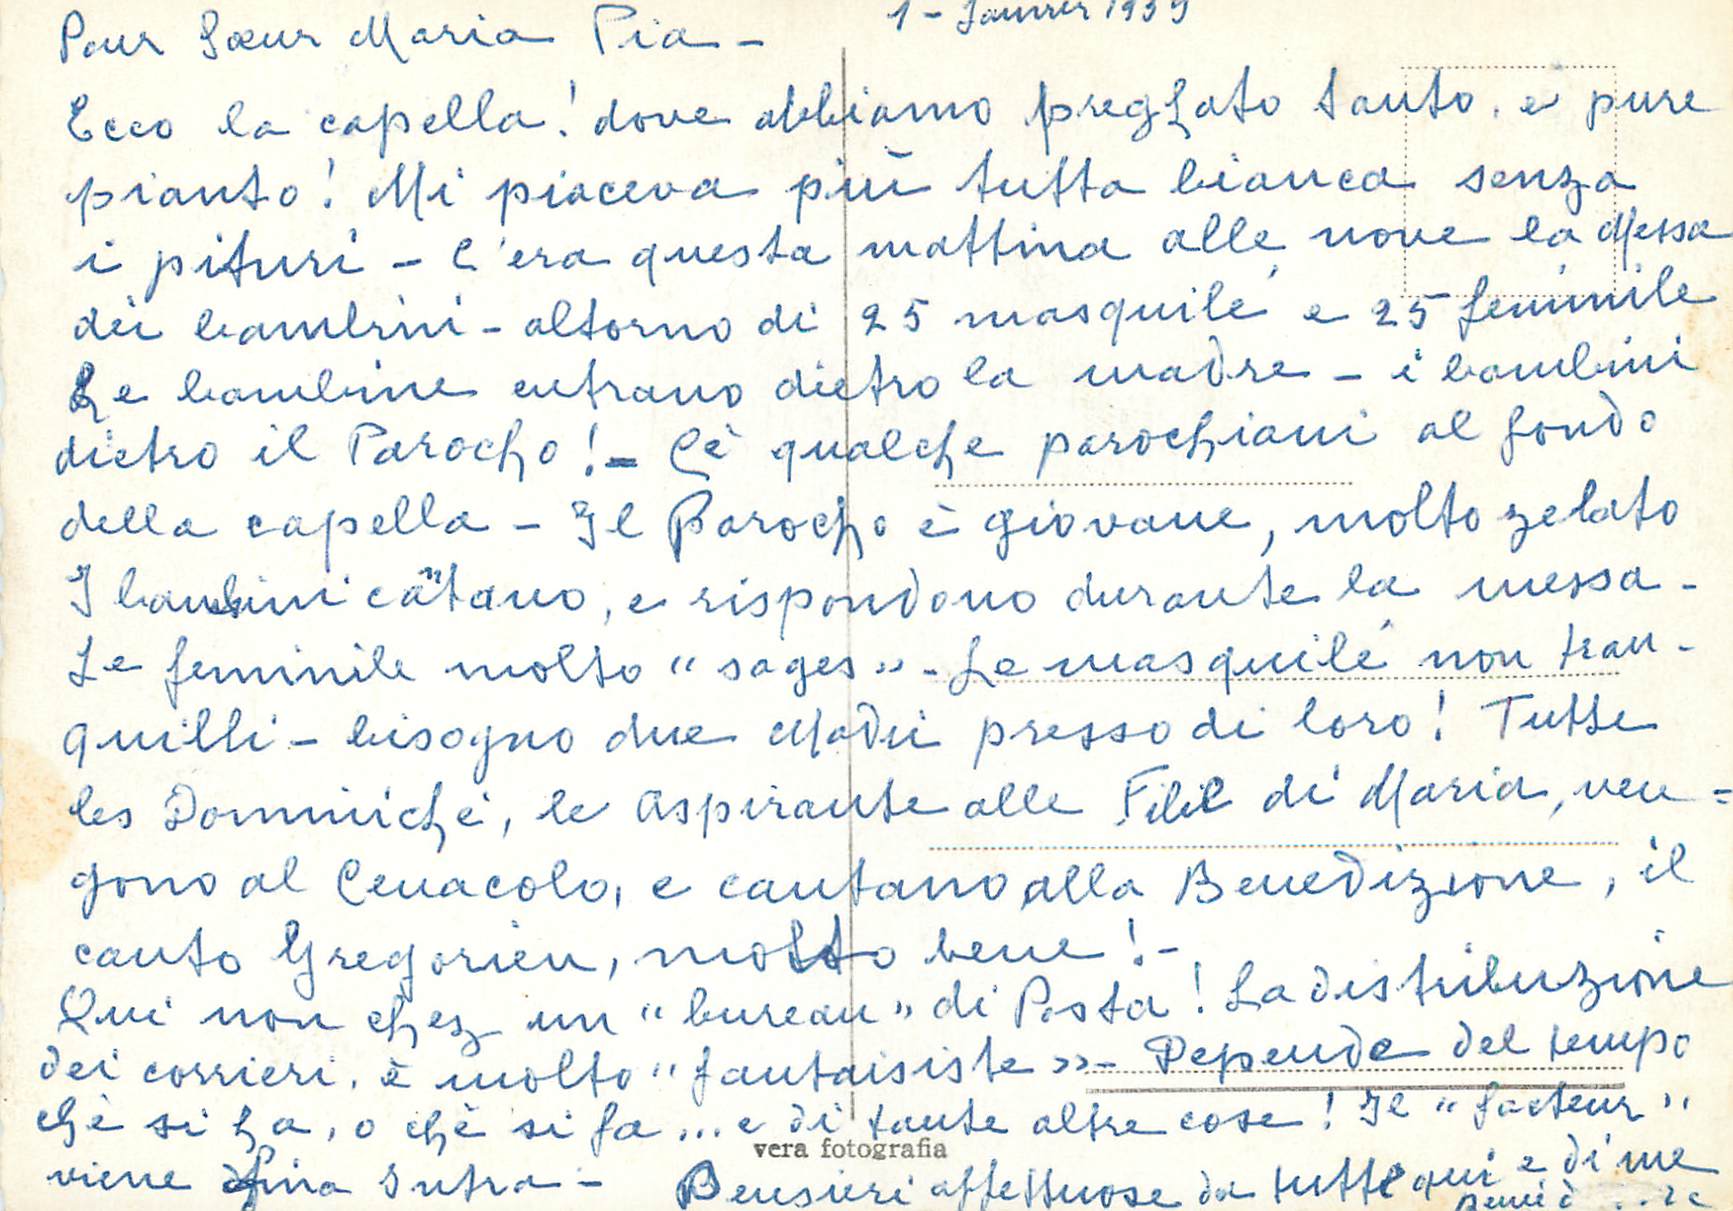 1 - Janvier 1939
Pour Sœur Maria Pia -
Ecco la capella! dove abbiamo preghato tanto. e pure
pianto! Mi piaceva più tutta bianca senza
i pituri - C'era questa mattina alle nove la Messa
dei bambini - altorno di 25 masquile e 25 feminile
Le bambine entrano dietro la madre - i bambini
dietro il Parocho! - C'è qualche parochiani al fondo
della capella - Il Parocho è giovane, molto zelato
I bambini cātano, e rispondono durante la messa -
Le feminile molto "sages" - Le masquile non tran-
quilli - bisogno due Madri presso di loro! Tutte
les Dominiche, le aspirante alle di Maria, ven=
gono al Cenacolo, e cantano alla Benedizione, il
canto Gregorien, molto bene! -
Qui non chez un "bureau" di Posta! La distribuzione
dei corrieri. è molto "fantaisiste" - Depende del tempo
che si ha, o che si fa ... e di tante altre cose! Il "facteur"
viene Sutra -
vera fotografia
Pensieri affettuose da tutte qui e di me